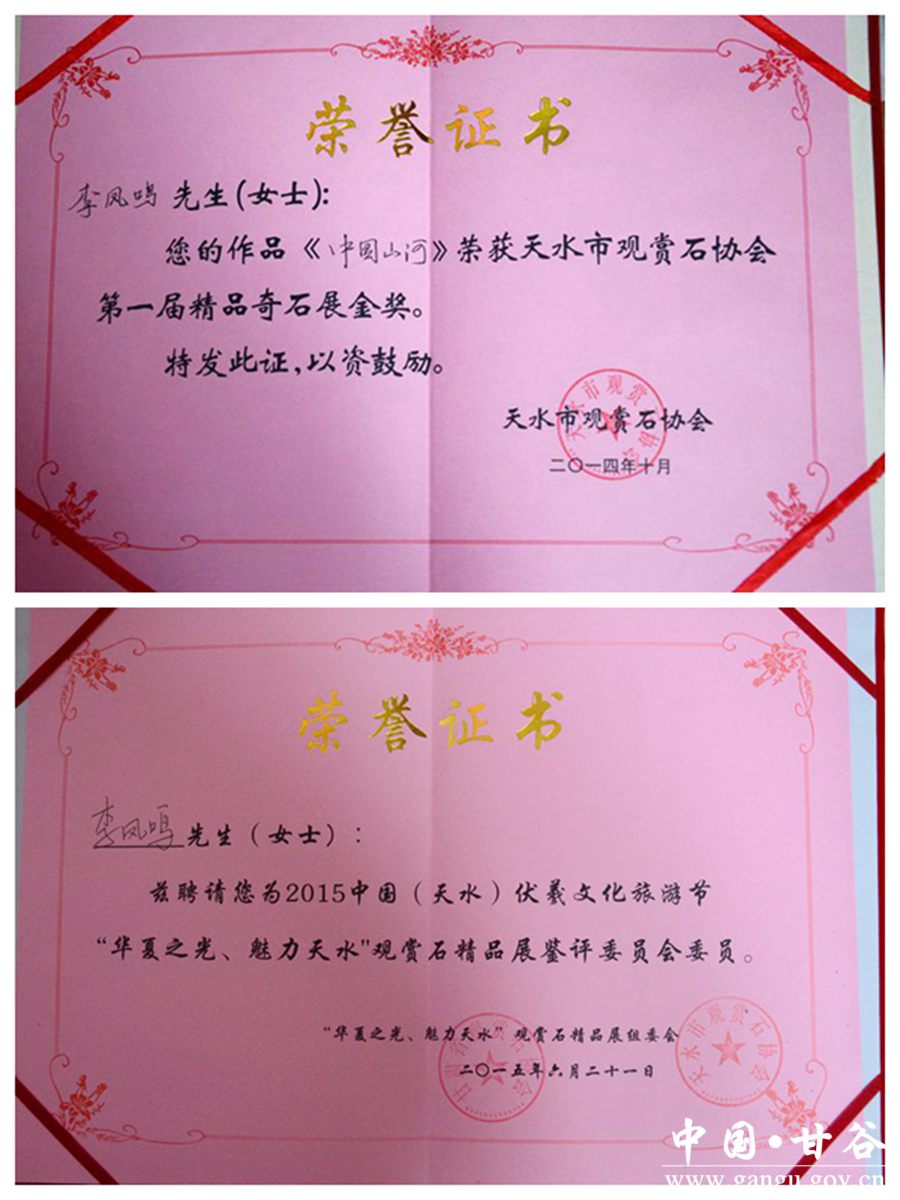 荣誉证书
李凤鸣 先生(女士):
您的作品《中国山河》荣获天水市观赏石协会
第一届精品奇石展金奖。
特发此证,以资鼓励。
天水市观赏石协会
二〇一四年十月
荣誉证书
李凤鸣 先生（女士）：
兹聘请您为2015中国（天水）伏羲文化旅游节
“华夏之光、魅力天水"观赏石精品展鉴评委员会委员。
“华夏之光、魅力天水”观赏石精品展组委会
天水市观赏石协会
二〇一五年六月二十一日
中国·甘谷
www.gangu.gov.cn